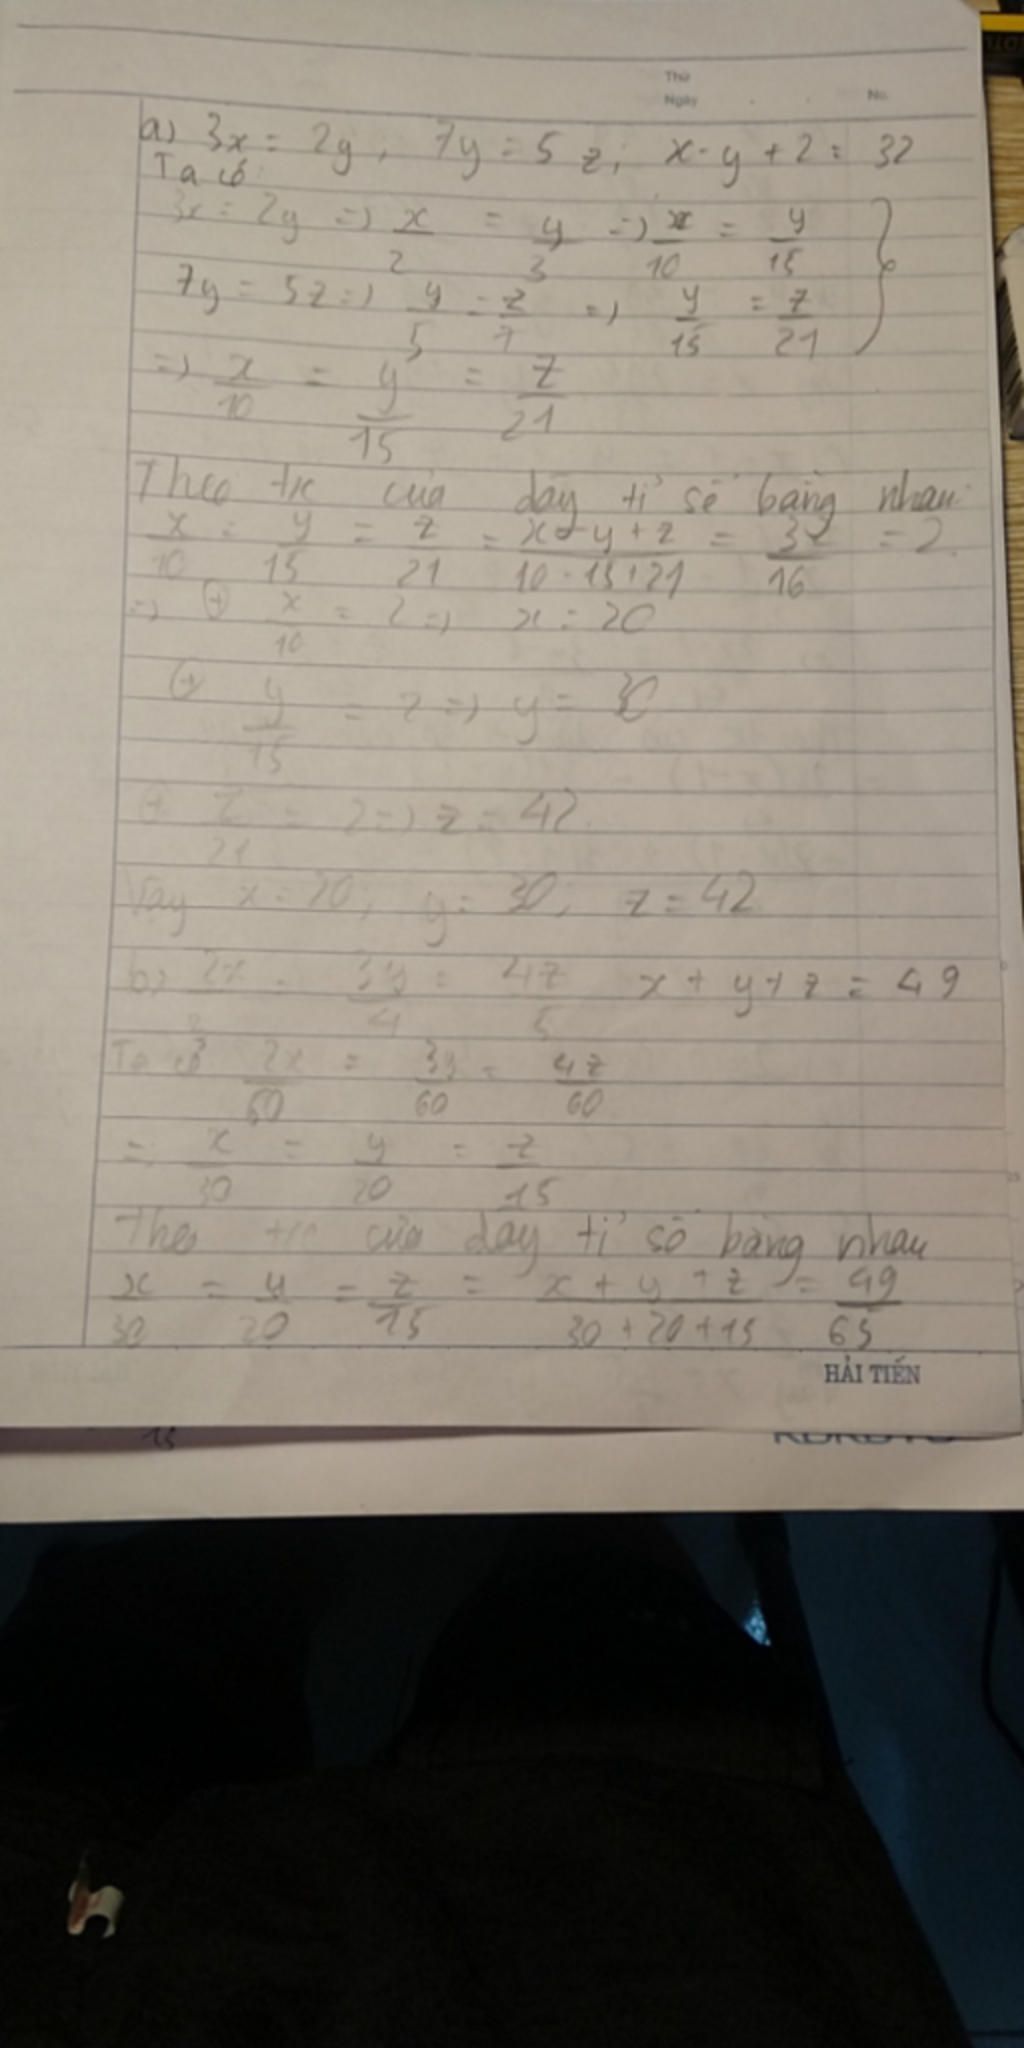 Thứ
Ngày No.
a) 3x = 2y, 7y = 5z; x - y + z = 32
Ta có:
3x = 2y => x/2 = y/3 => x/10 = y/15
7y = 5z => y/5 = z/7 => y/15 = z/21
=> x/10 = y/15 = z/21
Theo t/c của dãy tỉ số bằng nhau
x/10 = y/15 = z/21 = x - y + z/10 - 15 + 21 = 32/16 = 2
=> (+) x/10 = 2 => x = 20
(+) y/15 = 2 => y = 30
(+) z/21 = 2 => z = 42.
Vậy x = 20; y = 30; z = 42
b) 2x/3 = 3y/4 = 4z/5 x + y + z = 49
Ta có 2x/60 = 3y/60 = 4z/60
=> x/30 = y/20 = z/15
Theo t/c của dãy tỉ số bằng nhau
x/30 = y/20 = z/15 = x + y + z/30 + 20 + 15 = 49/65
HẢI TIẾN
15